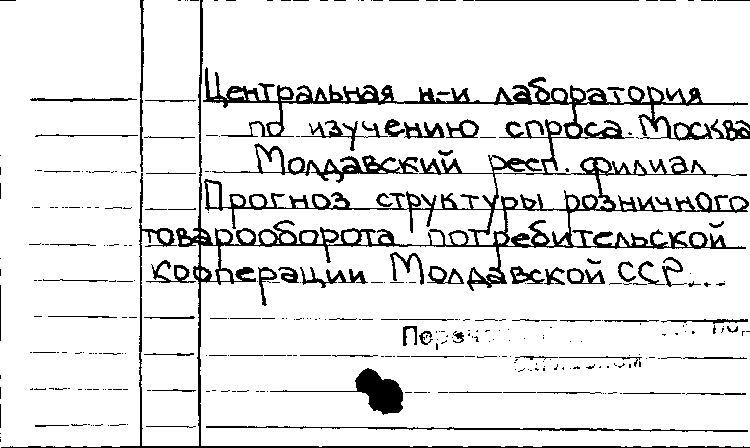 Центральная н-и. лаборатория
по изучению спроса. Москва
Молдавский респ. филиал.
Прогноз структуры розничного
товарооборота потребительской
кооперации Молдавской ССР...